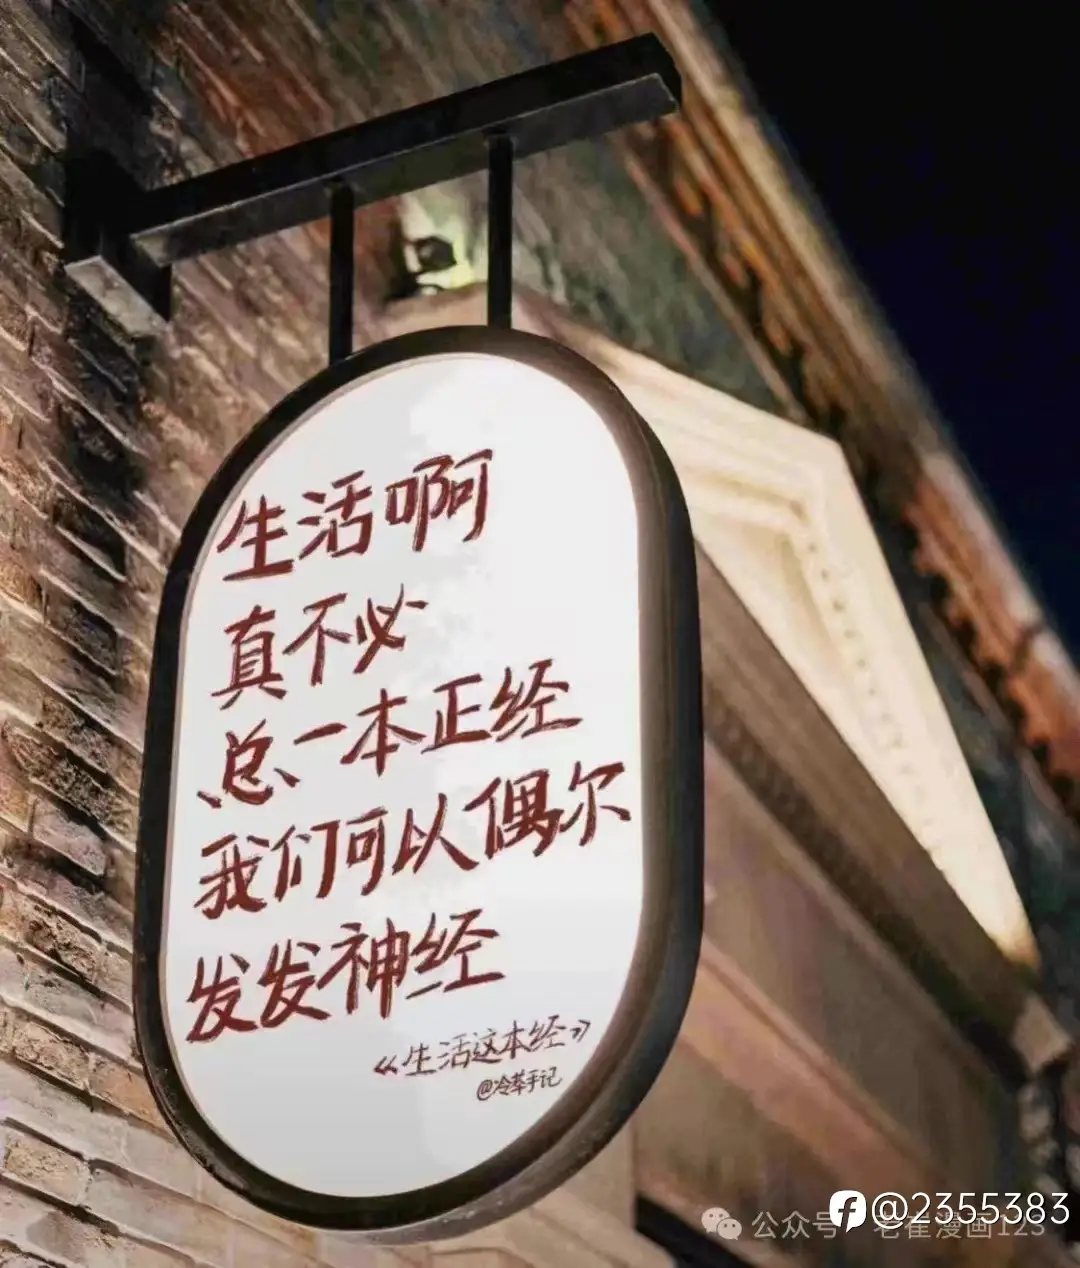 生活啊
真不必
总一本正经
我们可以偶尔
发发神经
《生活这本经》
@冷萃手记
公众号 老崔漫画123
@2355383